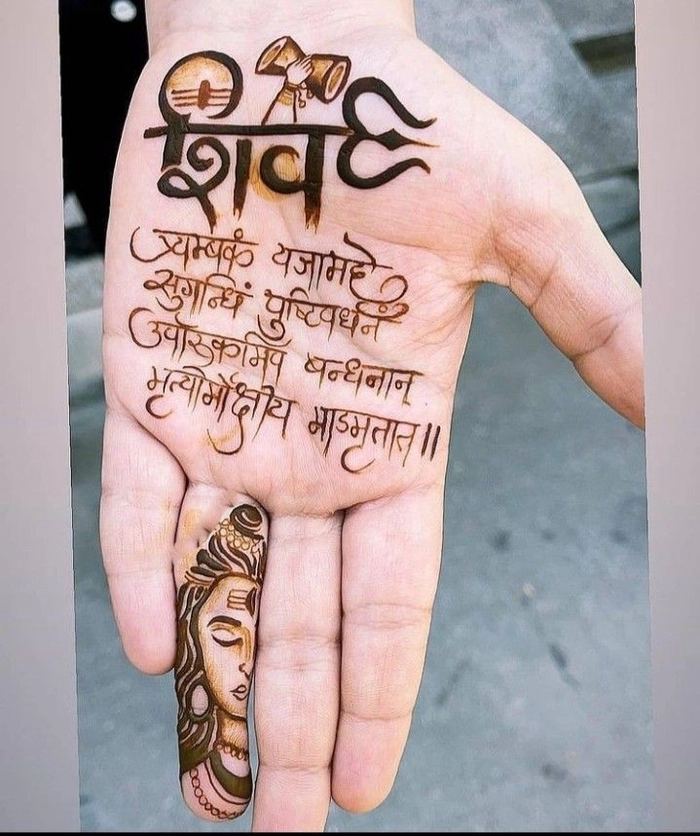 शिव
त्र्यम्बकं यजामहे
सुगन्धिं पुष्टिवर्धनं
उर्वारुकमिव बन्धनान्
मृत्योर्मोक्षीय माऽमृतात॥